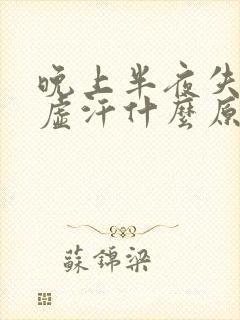 晚上半夜失
虛汗什麼原
蘇錦梁